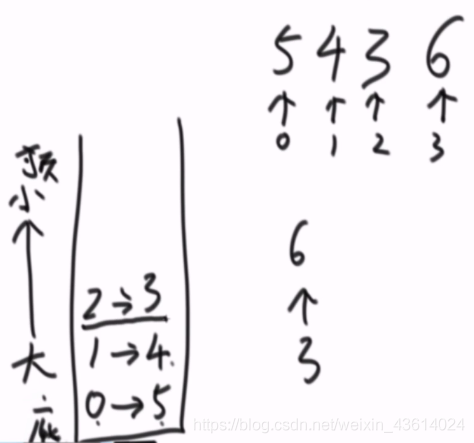 5 4 3 6
↑ ↑ ↑ ↑
0 1 2 3
顶
小
↑
大
6
↑
3
2→3
1→4
0→5
https://blog.csdn.net/weixin_43614024